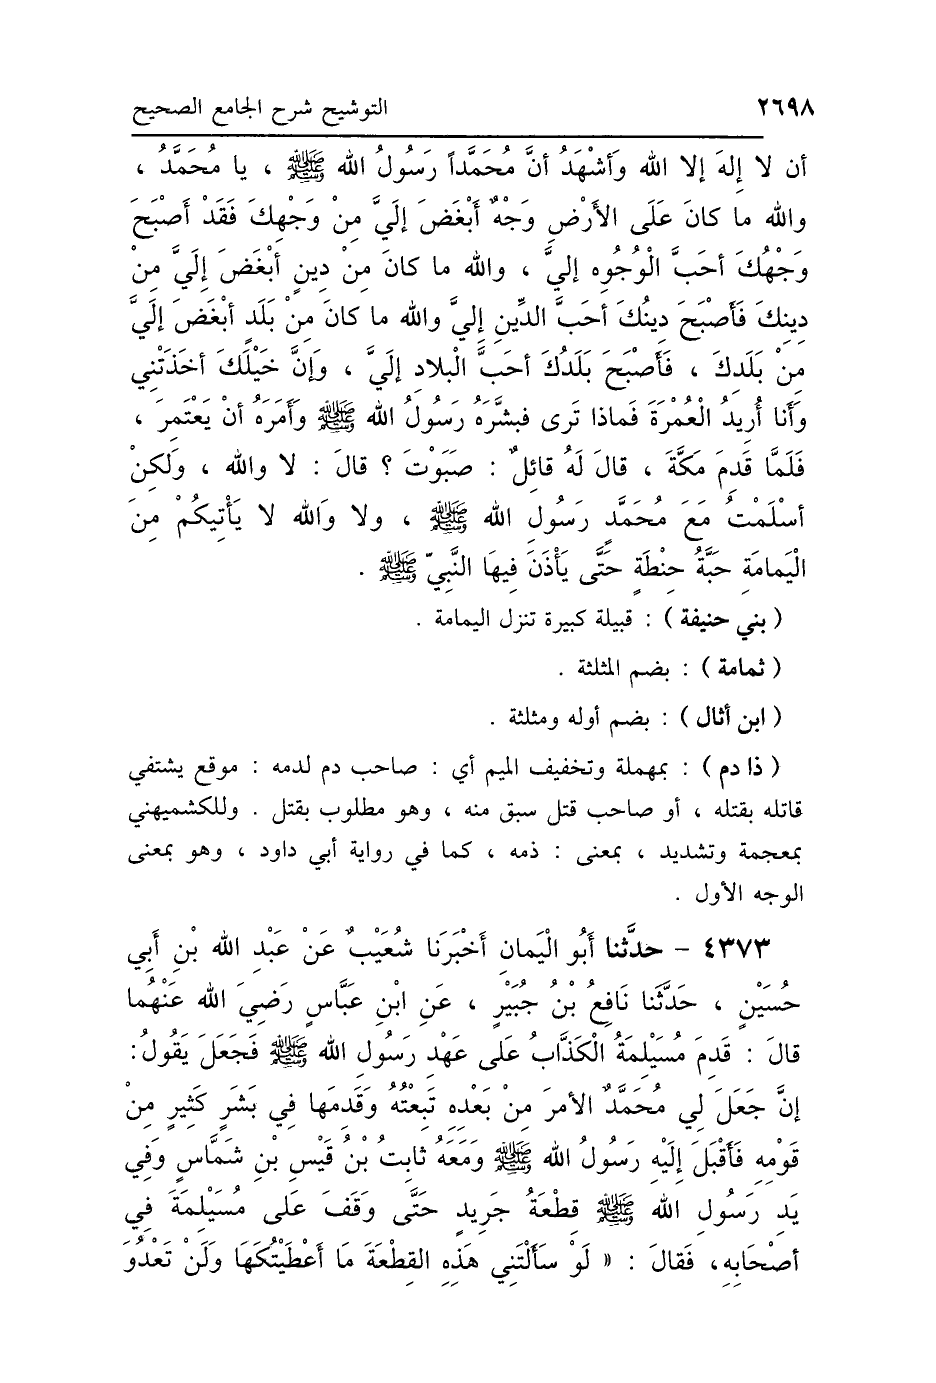 ٢٦٩٨ التوشيح شرح الجامع الصحيح
أن لا إِلهَ إلا الله وَأشْهَدُ أنَّ مُحَمَّداً رَسُولُ الله ﷺ ، يا مُحَمَّدُ ،
والله ما كانَ عَلَى الأَرْضِ وَجْهٌ أَبْغَضَ إلَيَّ مِنْ وَجْهِكَ فَقَدْ أصْبَحَ
وَجْهُكَ أحَبَّ الْوُجُوهِ إليَّ ، والله ما كانَ مِنْ دِينٍ أبْغَضَ إِلَيَّ مِنْ
دِينِكَ فَأَصْبَحَ دِينُكَ أحَبَّ الدِّينِ إليَّ والله ما كانَ مِنْ بَلَدٍ أبْغَضَ إلَيَّ
مِنْ بَلَدِكَ ، فَأصْبَحَ بَلَدُكَ أحَبَّ الْبلادِ إلَيَّ ، وَإنَّ خَيْلَكَ أخَذَتْنِي
وَأنا أُرِيدُ الْعُمْرَةَ فَماذا تَرى فبشَّرَهُ رَسُولُ الله ﷺ وَأمَرَهُ أنْ يَعْتَمِرَ ،
فَلَمَّا قَدِمَ مَكَّةَ ، قالَ لَهُ قائِلٌ : صَبَوْتَ ؟ قالَ : لا والله ، وَلكِنْ
أسْلَمْتُ مَعَ مُحَمَّدٍ رَسُولِ الله ﷺ ، ولا وَالله لا يَأْتِيكُمْ مِنَ
الْيَمامَةِ حَبَّةُ حِنْطَةٍ حَتَّى يَأْذَنَ فِيهَا النَّبِيّ ﷺ .
( بني حنيفة ) : قبيلة كبيرة تنزل اليمامة .
( ثمامة ) : بضم المثلثة .
( ابن أثال ) : بضم أوله ومثلثة .
( ذا دم ) : بمهملة وتخفيف الميم أي : صاحب دم لدمه : موقع يشتفي
قاتله بقتله ، أو صاحب قتل سبق منه ، وهو مطلوب بقتل . وللكشميهني
بمعجمة وتشديد ، بمعنى : ذمه ، كما في رواية أبي داود ، وهو بمعنى
الوجه الأول .
٤٣٧٣ – حدَّثنا أَبُو الْيَمانِ أَخْبَرَنَا شُعَيْبٌ عَنْ عَبْدِ الله بْنِ أَبِي
حُسَيْنٍ ، حَدَّثَنَا نَافِعُ بْنُ جُبَيْرٍ ، عَنِ ابْنِ عَبَّاسٍ رَضِيَ الله عَنْهُما
قالَ : قَدِمَ مُسَيْلِمَةُ الْكَذَّابُ عَلى عَهْدِ رَسُولِ الله ﷺ فَجَعَلَ يَقُولُ:
إنَّ جَعَلَ لِي مُحَمَّدٌ الأمرَ مِنْ بَعْدِهِ تَبِعْتُهُ وَقَدِمَها فِي بَشَرٍ كَثِيرٍ مِنْ
قَوْمِهِ فَأَقْبَلَ إِلَيْهِ رَسُولُ الله ﷺ وَمَعَهُ ثابِتُ بْنُ قَيْسِ بْنِ شَمَّاسٍ وَفِي
يَدِ رَسُولِ الله ﷺ قِطْعَةُ جَرِيدٍ حَتَّى وَقَفَ عَلَى مُسَيْلِمَةَ فِي
أصْحَابِهِ، فَقالَ : « لَوْ سَألْتَنِي هَذِهِ القِطْعَةَ مَا أَعْطَيْتُكَهَا وَلَنْ تَعْدُوَ